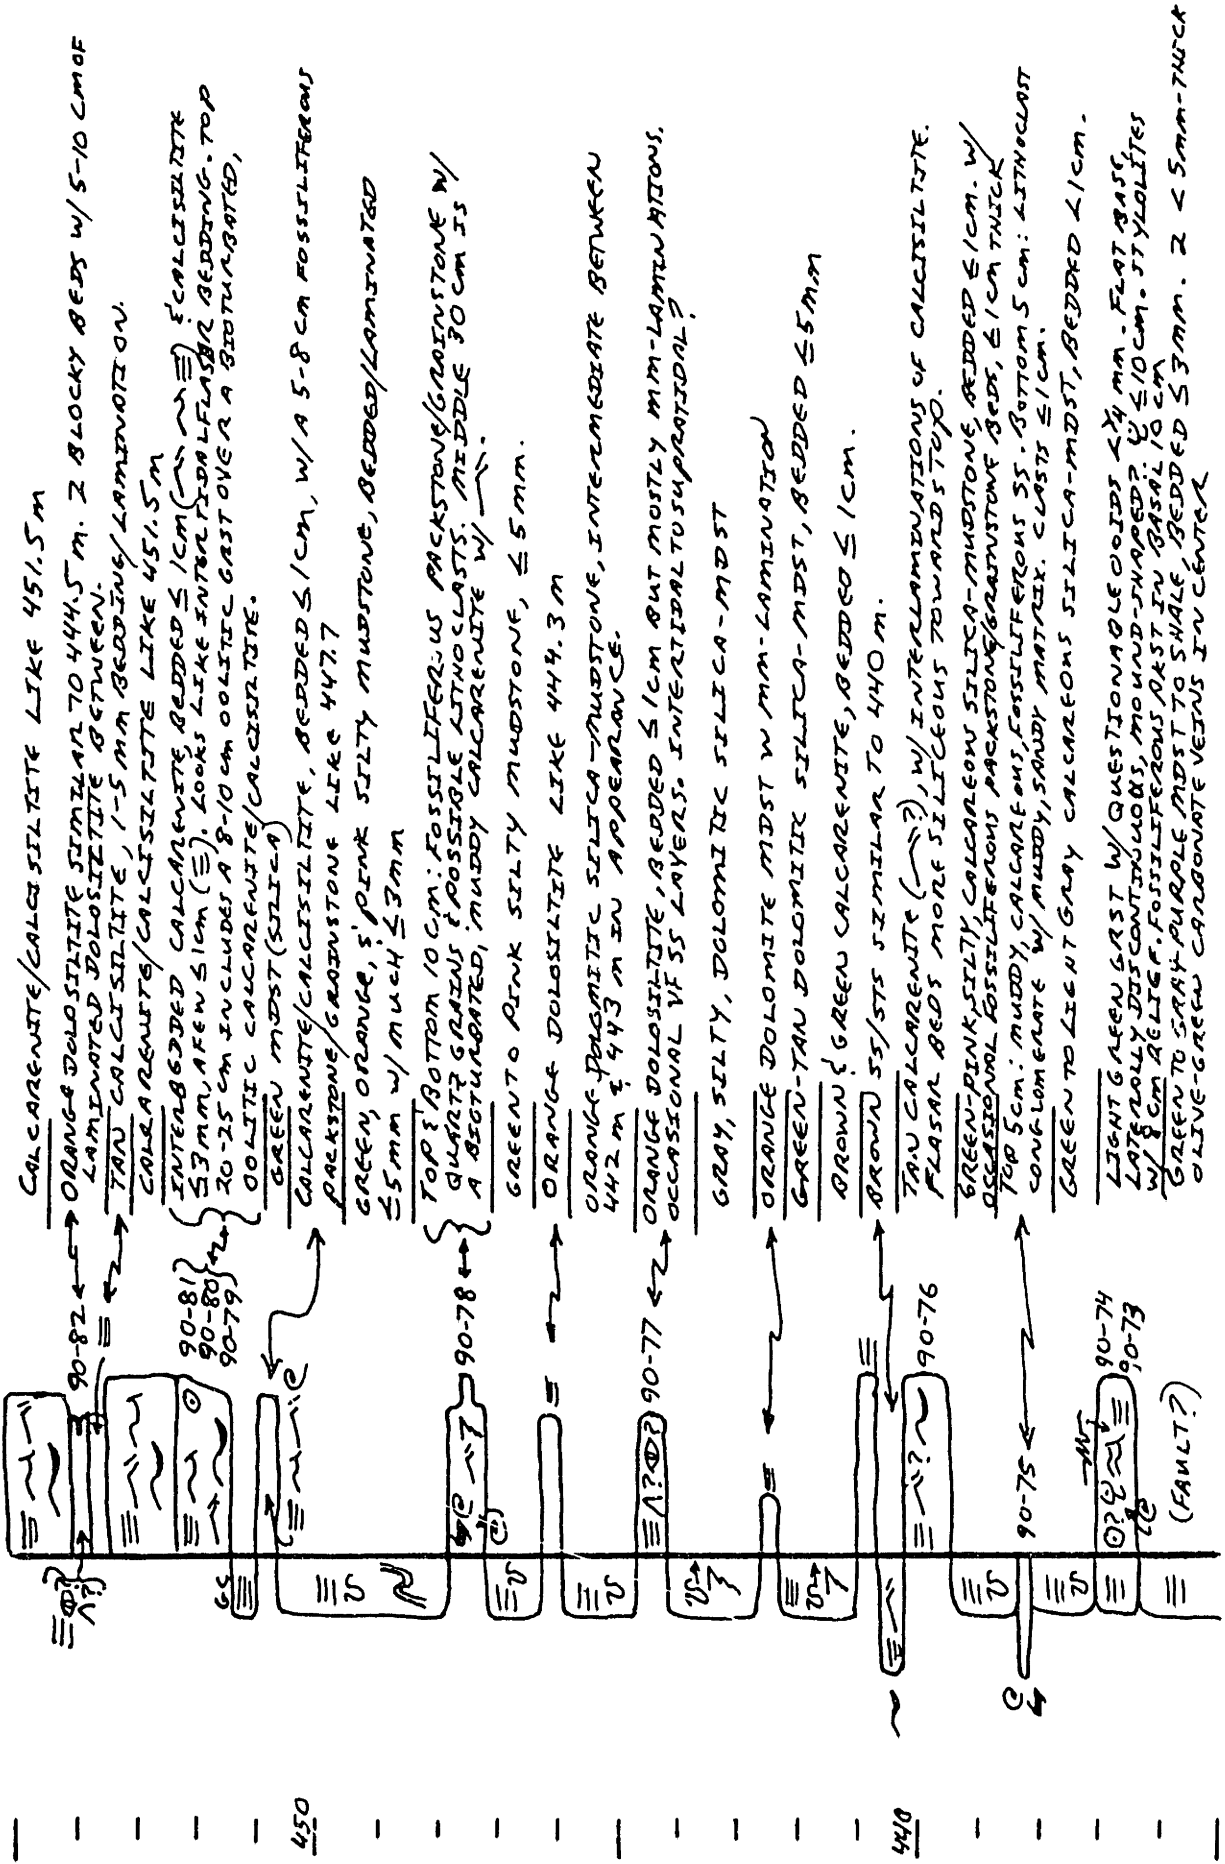 CALCARENITE/CALCISILTITE LIKE 451.5 m
ORANGE DOLOSILTITE SIMILAR TO 444.5 m. 2 BLOCKY BEDS W/ 5-10 CM OF
LAMINATED DOLOSILTITE BETWEEN.
TAN CALCISILTITE, 1-5 MM BEDDING/LAMINATION.
CALCARENITE/CALCISILTITE LIKE 451.5 m
INTERBEDDED CALCARENITE, BEDDED ≤ 1cm & CALCISILTITE
≤3mm, A FEW ≤1cm (≡). LOOKS LIKE INTERTIDAL FLASAR BEDDING. TOP
20-25 cm INCLUDES A 8-10 cm OOLITIC GRST OVER A BIOTURBATED,
OOLITIC CALCARENITE/CALCISILTITE.
GREEN MDST (SILICA)
CALCARENITE/CALCISILTITE, BEDDED ≤ 1cm, W/ A 5-8 cm FOSSILIFEROUS
PACKSTONE/GRAINSTONE LIKE 447.7
GREEN, ORANGE, & PINK SILTY MUDSTONE, BEDDED/LAMINATED
≤ 5 mm W/ MUCH ≤ 3mm
TOP & BOTTOM 10 CM: FOSSILIFEROUS PACKSTONE/GRAINSTONE W/
QUARTZ GRAINS & POSSIBLE LITHOCLASTS. MIDDLE 30 cm IS
A BIOTURBATED, MUDDY CALCARENITE W/
GREEN TO PINK SILTY MUDSTONE, ≤ 5 mm.
ORANGE DOLOSILTITE LIKE 444.3 m
ORANGE DOLOMITIC SILICA-MUDSTONE, INTERMEDIATE BETWEEN
442 m & 443 m IN APPEARANCE.
ORANGE DOLOSILTITE, BEDDED ≤ 1cm BUT MOSTLY MM-LAMINATIONS,
OCCASIONAL VF SS LAYERS. INTERTIDAL TO SUPRATIDAL?
GRAY, SILTY, DOLOMITIC SILICA-MDST
ORANGE DOLOMITE MDST W MM-LAMINATION
GREEN-TAN DOLOMITIC SILICA-MDST, BEDDED ≤ 5mm
BROWN & GREEN CALCARENITE, BEDDED ≤ 1cm.
BROWN SS/STS SIMILAR TO 440 m.
TAN CALCARENITE (?), W/ INTERLAMINATIONS OF CALCISILTITE.
FLASAR BEDS MORE SILICEOUS TOWARDS TOP.
GREEN-PINK, SILTY, CALCAREOUS SILICA-MUDSTONE, BEDDED ≤ 1cm. W/
OCCASIONAL FOSSILIFEROUS PACKSTONE/GRAINSTONE BEDS, ≤ 1cm THICK
TOP 5cm: MUDDY, CALCAREOUS, FOSSILIFEROUS SS. BOTTOM 5 cm: LITHOCLAST
CONGLOMERATE W/ MUDDY, SANDY MATRIX. CLASTS ≤ 1cm.
GREEN TO LIGHT GRAY CALCAREOUS SILICA-MDST, BEDDED < 1cm.
LIGHT GREEN GRST W/ QUESTIONABLE OOIDS < 1/4 mm. FLAT BASE,
LATERALLY DISCONTINUOUS, MOUND-SHAPED? ≤ 10cm. STYLOLITES
W/ 8 cm RELIEF. FOSSILIFEROUS PKST IN BASAL 10 cm
GREEN TO GRAY-PURPLE MDST TO SHALE, BEDDED ≤ 3mm. 2 < 5mm-THICK
OLIVE-GREEN CARBONATE VEINS IN CENTER
90-82
90-81
90-80
90-79
90-78
90-77
90-76
90-75
90-74
90-73
(FAULT?)
450
440